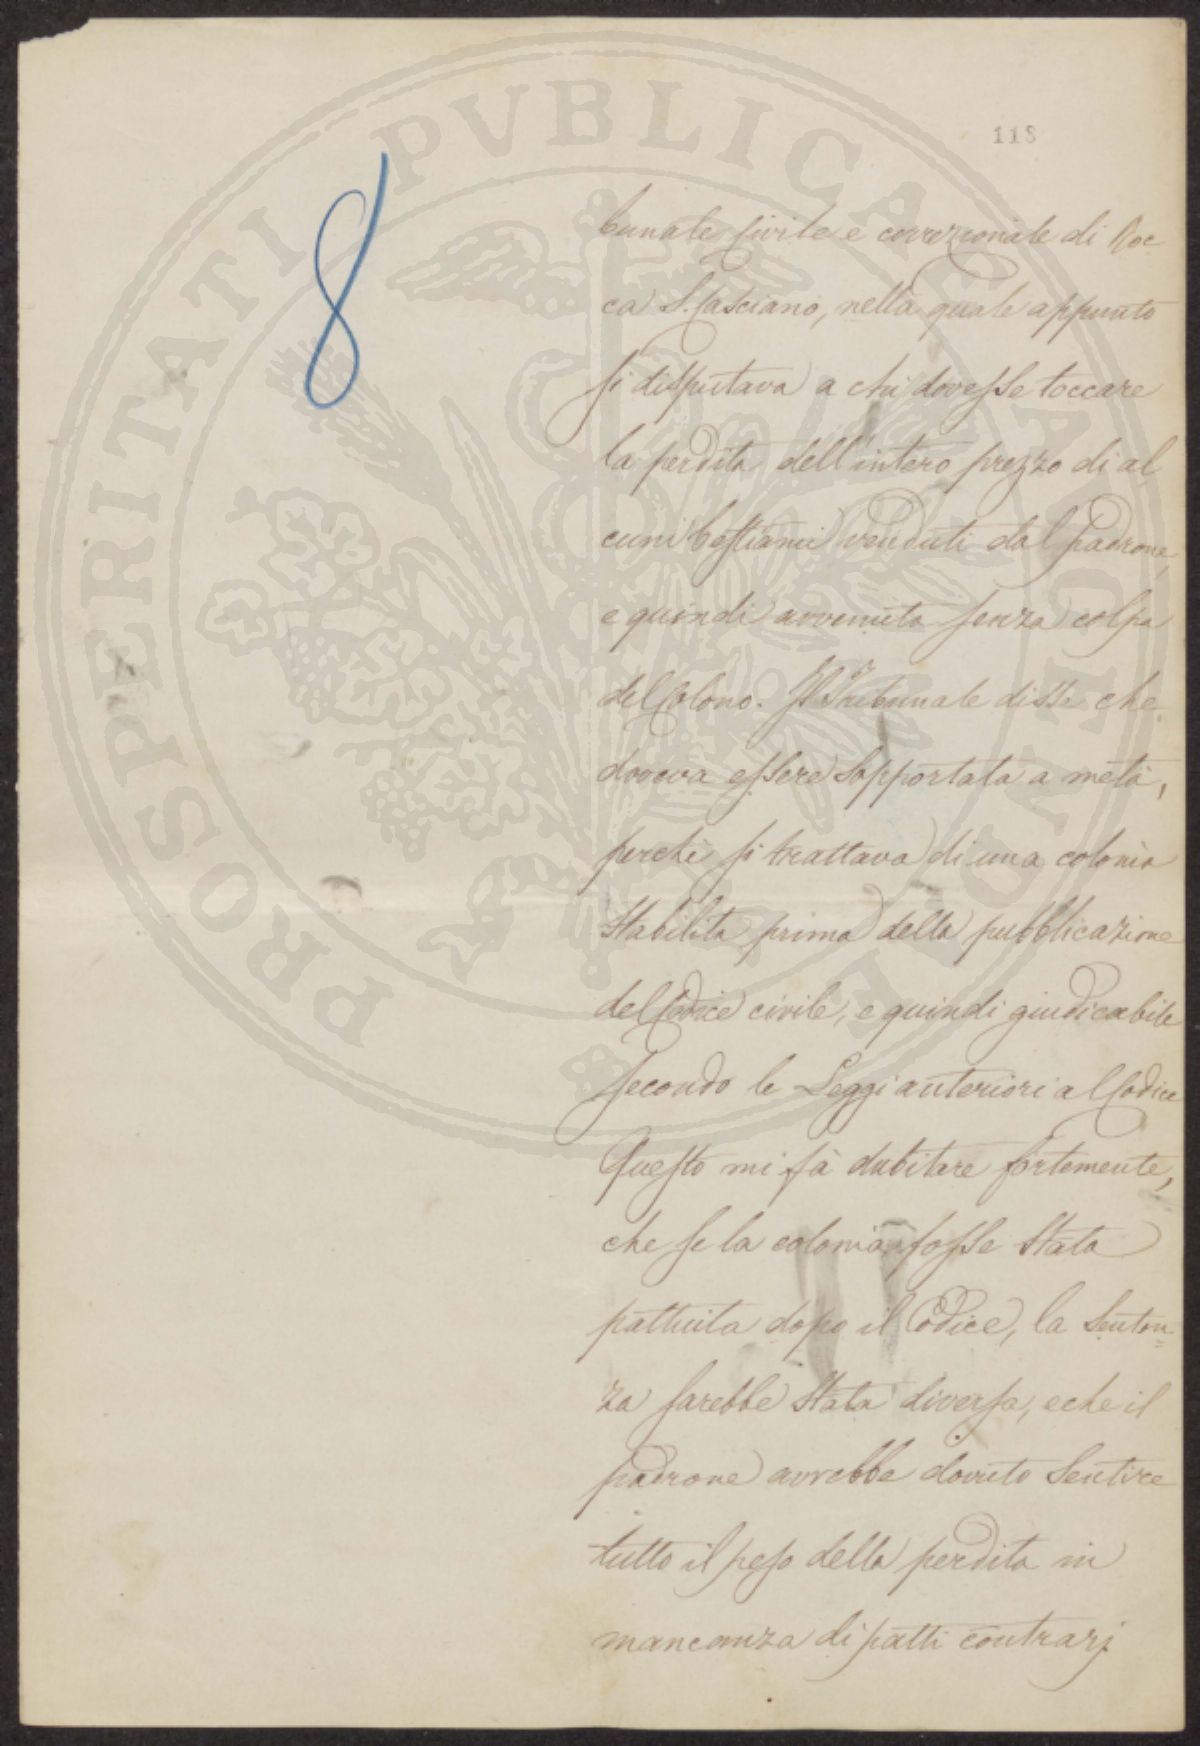 118
8
bunale Civile e correzionale di Roc
ca S. Casciano, nella quale appunto
si disputava a chi dovesse toccare
la perdita dell'intero prezzo di al
cuni bestiami venduti dal Padrone,
e quindi avvenuta senza colpa
del Colono. Il Tribunale disse che
doveva essere sopportata a metà,
perchè si trattava di una colonia
stabilita prima della pubblicazione
del Codice civile, e quindi giudicabile
secondo le Leggi anteriori al Codice
Questo mi fà dubitare fortemente,
che se la colonia fosse stata
pattuita dopo il Codice, la Senten=
za sarebbe stata diversa, e che il
padrone avrebbe dovuto sentire
tutto il peso della perdita in
mancanza di patti contrarj.
PROSPERITATI PVBLICAE AVGENDAE